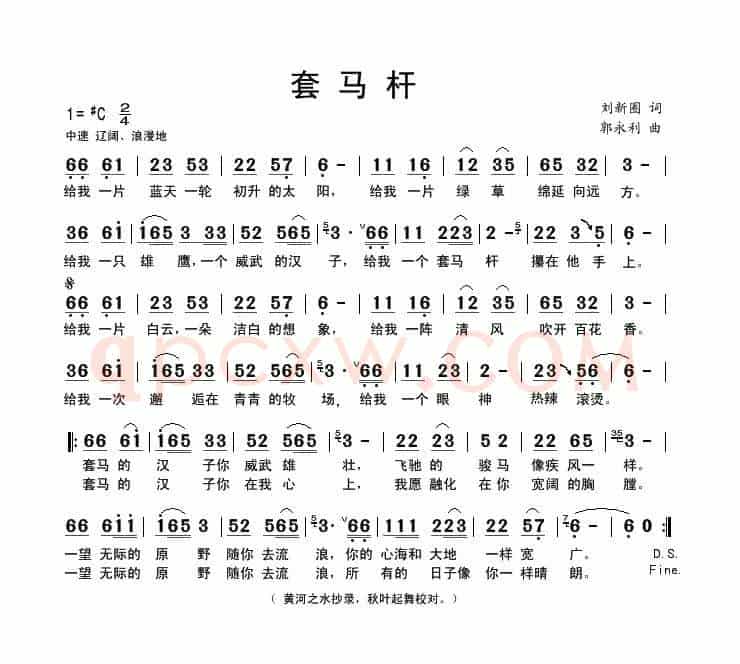 套马杆
1=#C 2/4
刘新圈 词
中速 辽阔、浪漫地
郭永利 曲
66 61 | 23 53 | 22 57 | 6 - | 11 16 | 12 35 | 65 32 | 3 - |
给我 一片 蓝天 一轮 初升 的太 阳, 给我 一片 绿 草 绵延 向远 方。
36 61 | 165 3 33 | 52 565 | 5 3 · 66 | 11 223 | 2 - | 22 3 5 | 6 - |
给我 一只 雄 鹰,一个 威武 的汉 子,给我 一个 套马 杆 攥在 他 手 上。
66 61 | 23 53 | 22 57 | 6 - | 11 16 | 12 35 | 65 32 | 3 - |
给我 一片 白云,一朵 洁白 的想 象, 给我 一阵 清 风 吹开 百花 香。
36 61 | 165 33 | 52 565 | 5 3 · 66 | 11 223 | 2 - | 22 56 | 6 - |
给我 一次 邂 逅在 青青 的牧 场,给我 一个 眼 神 热辣 滚烫。
66 61 | 165 33 | 52 565 | 5 3 - | 22 23 | 5 2 | 22 61 | 35 3 - |
套马 的 汉 子你 威武 雄 壮, 飞驰 的 骏 马 像疾 风一 样。
套马 的 汉 子你 在我 心 上, 我愿 融化 在 你 宽阔 的胸 膛。
66 611 | 165 3 | 52 565 | 5 3 · 66 | 111 223 | 22 57 | 7 6 - | 6 0 :|
一望 无际的 原 野 随你 去流 浪,你的 心海和 大地 一样 宽 广。 D.S.
一望 无际的 原 野 随你 去流 浪,所 有的 日子像 你 一样晴 朗。 Fine.
( 黄河之水抄录,秋叶起舞校对。)
qpcxw.com